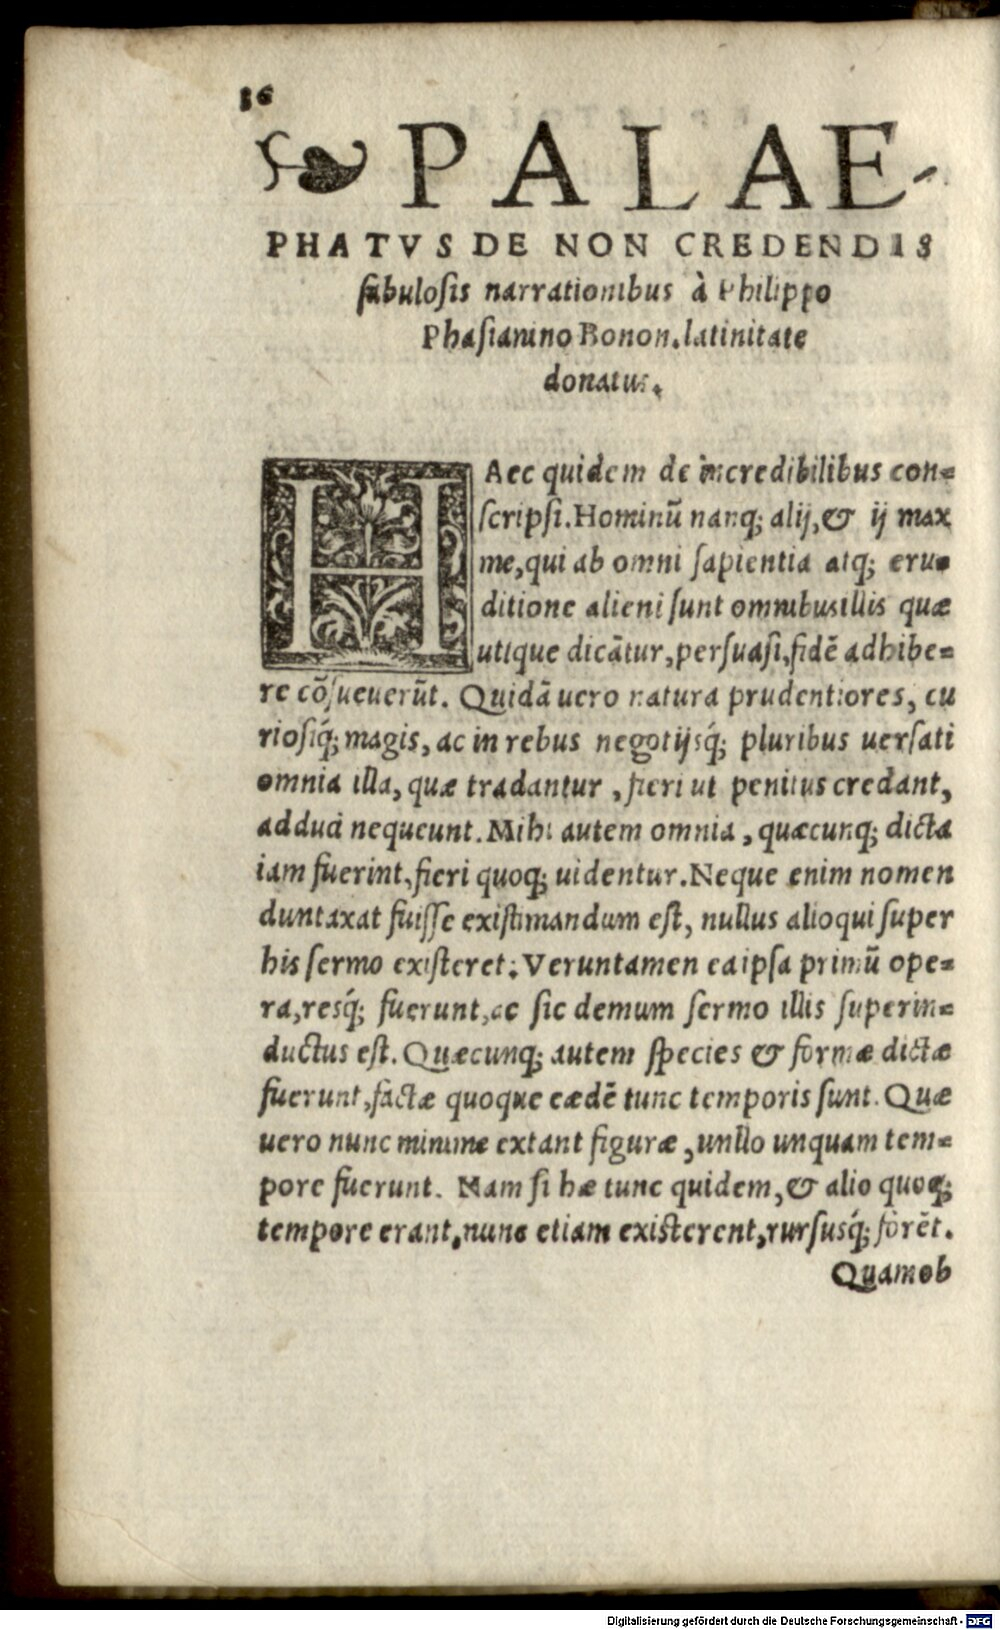 16
PALAE-
PHATVS DE NON CREDENDIS
fabulosis narrationibus à Philippo
Phasianino Bonon. latinitate
donatus.
HAec quidem de incredibilibus con=
scripsi. Hominū nanq; alij, & ij max
me, qui ab omni sapientia atq; eru=
ditione alieni sunt omnibus illis quæ
utique dicātur, persuasi, fidē adhibe=
re cōsueuerūt. Quidā uero natura prudentiores, cu
riosiq́; magis, ac in rebus negotijsq́; pluribus uersati
omnia illa, quæ tradantur, fieri ut penitus credant,
adduci nequeunt. Mihi autem omnia, quæcunq; dicta
iam fuerint, fieri quoq; uidentur. Neque enim nomen
duntaxat fuisse existimandum est, nullus alioqui super
his sermo existeret: Veruntamen ea ipsa primū ope=
ra, resq́; fuerunt, ac sic demum sermo illis superin=
ductus est. Quæcunq; autem species & formæ dictæ
fuerunt, factæ quoque eædē tunc temporis sunt. Quæ
uero nunc minime extant figuræ, unllo unquam tem=
pore fuerunt. Nam si hæ tunc quidem, & alio quoq;
tempore erant, nunc etiam existerent, rursusq́; forēt.
Quamob
Digitalisierung gefördert durch die Deutsche Forschungsgemeinschaft - DFG